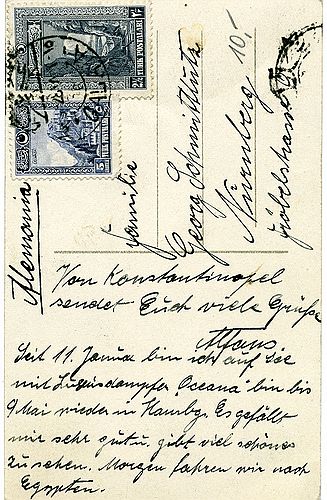 Alemania
Familie
Georg Schmittlutz
Nürnberg
Fröbelstrasse
10,-
Von Konstantinopel
sendet Euch viele Grüße
Alfons
Seit 11. Januar bin ich auf See
mit Luxusdampfer "Oceana" bin bis
9 Mai wieder in Hambg. Es gefällt
mir sehr gut u. gibt viel schönes
zu sehen. Morgen fahren wir nach
Egypten.